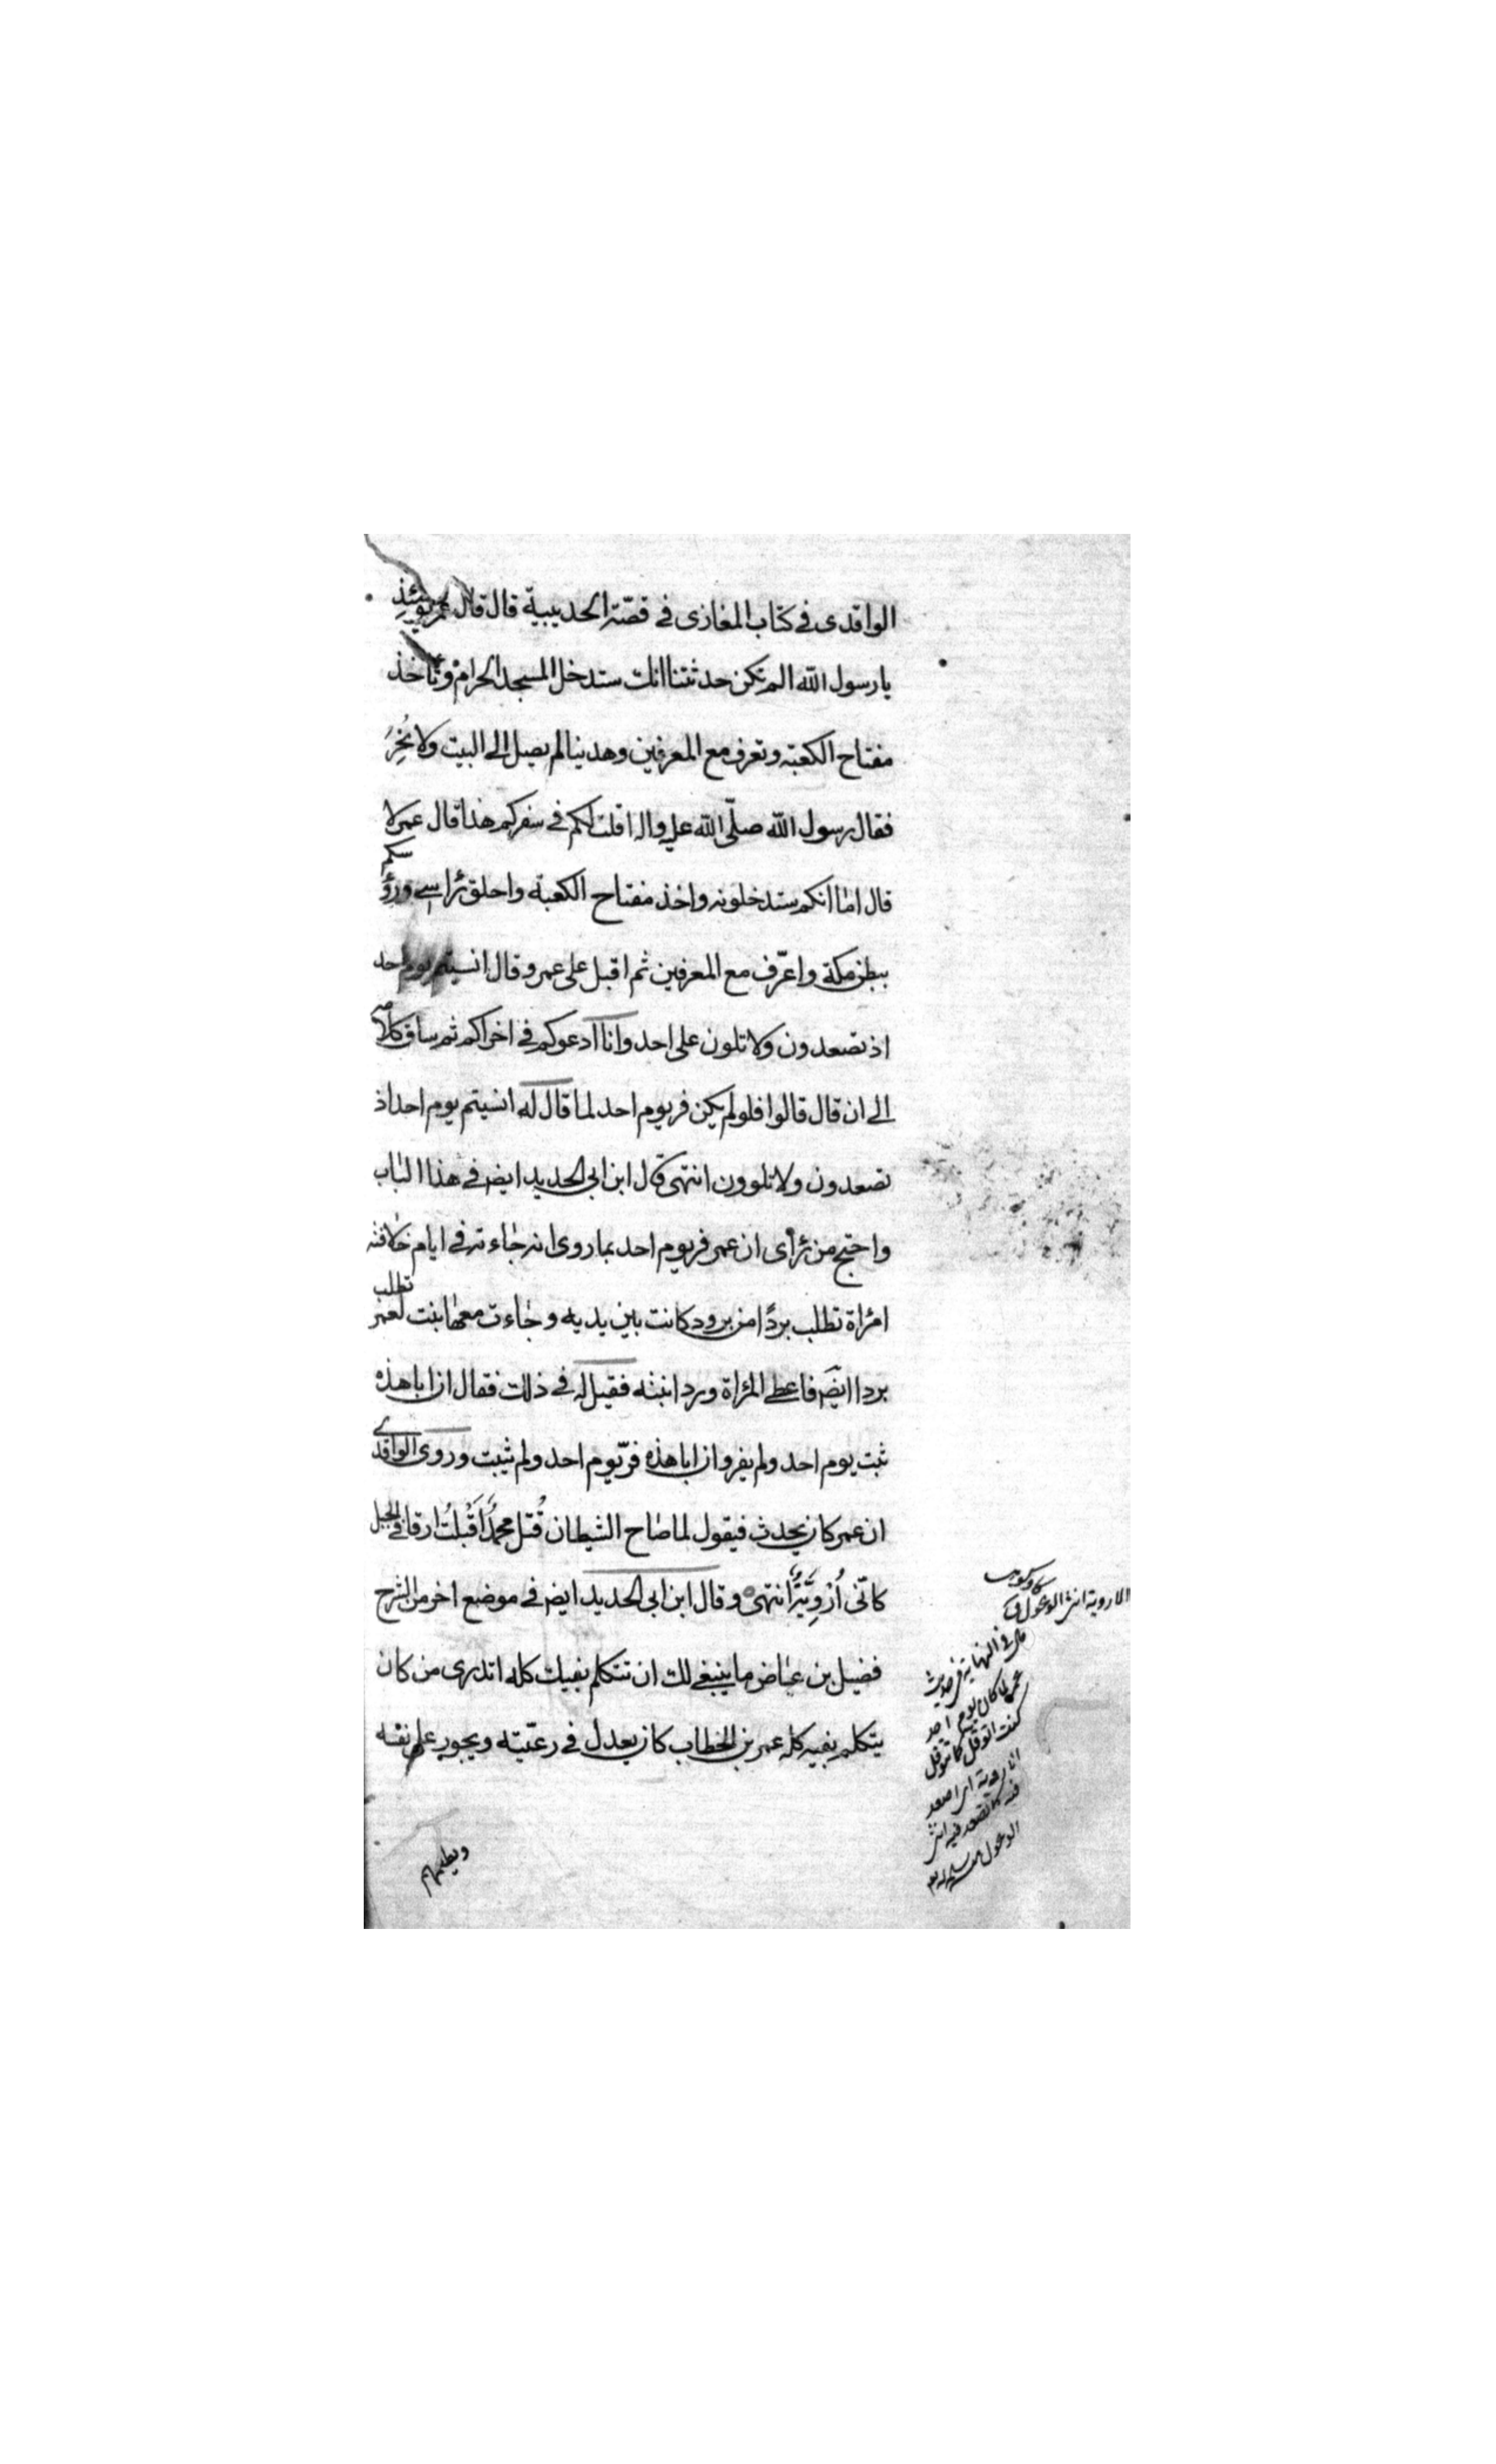 الواقدى فى كتاب المغازى فى قصّة الحديبيّة قال قال عمر يومئذٍ
يا رسول الله الم تكن حدثتنا انك ستدخل المسجد الحرام وتأخذ
مفتاح الكعبة وتعرف مع المعرفين وهدينا لم يصل الى البيت ولا نُحِرَ
فقال رسول الله صلّى الله عليه واله اقلت لكم فى سفركم هذا قال عمر لا
قال امّا انكم ستدخلونه واخذ مفتاح الكعبة واحلق رأسى ورؤسكم
ببطن مكة واعرّف مع المعرفين ثم اقبل على عمر وقال انسيتم يوم احد
اذ تصعدون ولا تلون على احد وانا ادعوكم فى اخراكم ثم ساق كلامه
الى ان قال قالوا فلو لم يكن فر يوم احد لما قال له انسيتم يوم احد اذ
تصعدون ولا تلوون انتهى قال ابن ابى الحديد ايض فى هذا الباب
واحتج من رأى ان عمر فر يوم احد بما روى انه جاءته فى ايام خلافته
امرأة تطلب بردًا من برود كانت بين يديه وجاءت معها بنت لعمر تطلب
بردا ايض فاعطى المرأة ورد ابنته فقيل له فى ذلك فقال ان ابا هذه
ثبت يوم احد ولم يفر وان ابا هذه فرّ يوم احد ولم يثبت وروى الواقدى
ان عمر كان يحدث فيقول لما صاح الشيطان قُتل محمدٌ اَقْبلتُ ارقا فى الجبل
كانّى اُرْوِيَّةٌ انتهى وقال ابن ابى الحديد ايض فى موضع اخر من الشرح
فضيل بن عياض ما ينبغى لك ان تتكلم بفيك كله اتدرى من كان
يتكلم بفيه كله عمر بن الخطاب كان يعدل فى رعيّته ويجور على نفسه
ويطعمهم
الاروية انثى الوعول
قال فى النهاية فى حديث
عمر لما كان يوم احد
كنت اتوقل كما تتوقل
الاروية اى اصعد
فيه كما تصعد فيه انثى
الوعول